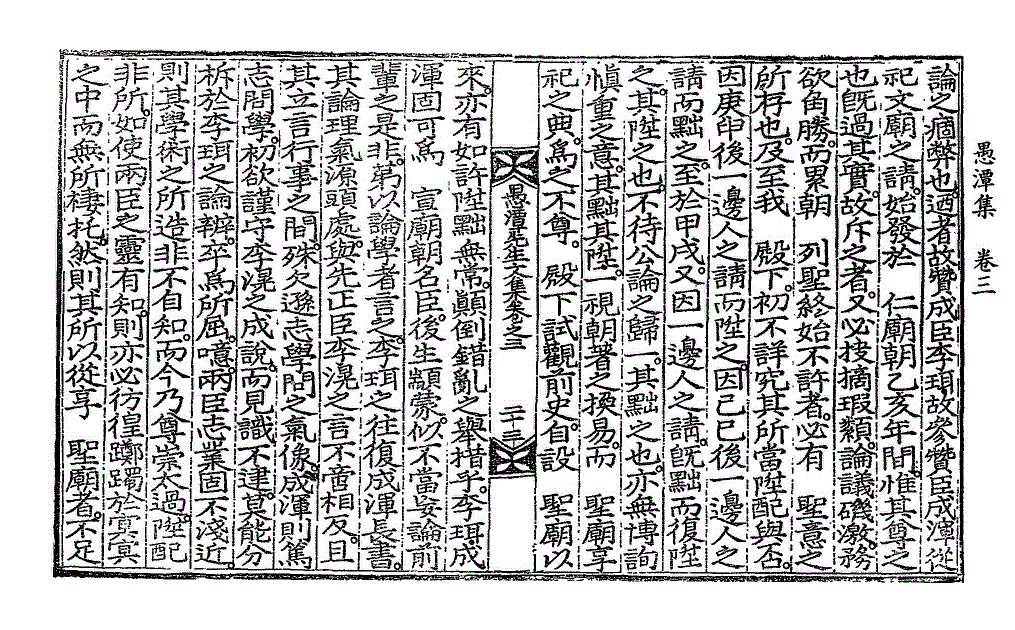 愚潭集　卷三
論之痼弊也。迺者故贊成臣李珥故參贊臣成渾從
祀文廟之請。始發於　仁廟朝乙亥年間。惟其尊之
也旣過其實。故斥之者。又必搜摘瑕纇。論議磯激。務
欲角勝。而累朝　列聖終始不許者。必有　聖意之
所存也。及至我　殿下。初不詳究其所當陞配與否。
因庚申後一邊人之請而陞之。因己巳後一邊人之
請而黜之。至於甲戌。又因一邊人之請。旣黜而復陞
之。其陞之也。不待公論之歸一。其黜之也。亦無博詢
愼重之意。其黜其陞。一視朝著之換易。而　聖廟享
祀之典。爲之不尊。　殿下試觀前史。自設　聖廟以
愚潭先生文集卷之三　二十三
來。亦有如許陞黜無常。顚倒錯亂之擧措乎。李珥成
渾固可爲　宣廟朝名臣。後生顓蒙。似不當妄論前
輩之是非。第以論學者言之。李珥之往復成渾長書。
其論理氣源頭處。與先正臣李滉之言不啻相反。且
其立言行事之間。殊欠遜志學問之氣像。成渾則篤
志問學。初欲謹守李滉之成說。而見識不逮。莫能分
析於李珥之論辨。卒爲所屈。噫。兩臣志業固不淺近。
則其學術之所造非不自知。而今乃尊崇太過。陞配
非所。如使兩臣之靈有知。則亦必彷徨躑躅於冥冥
之中而無所棲托。然則其所以從享　聖廟者。不足